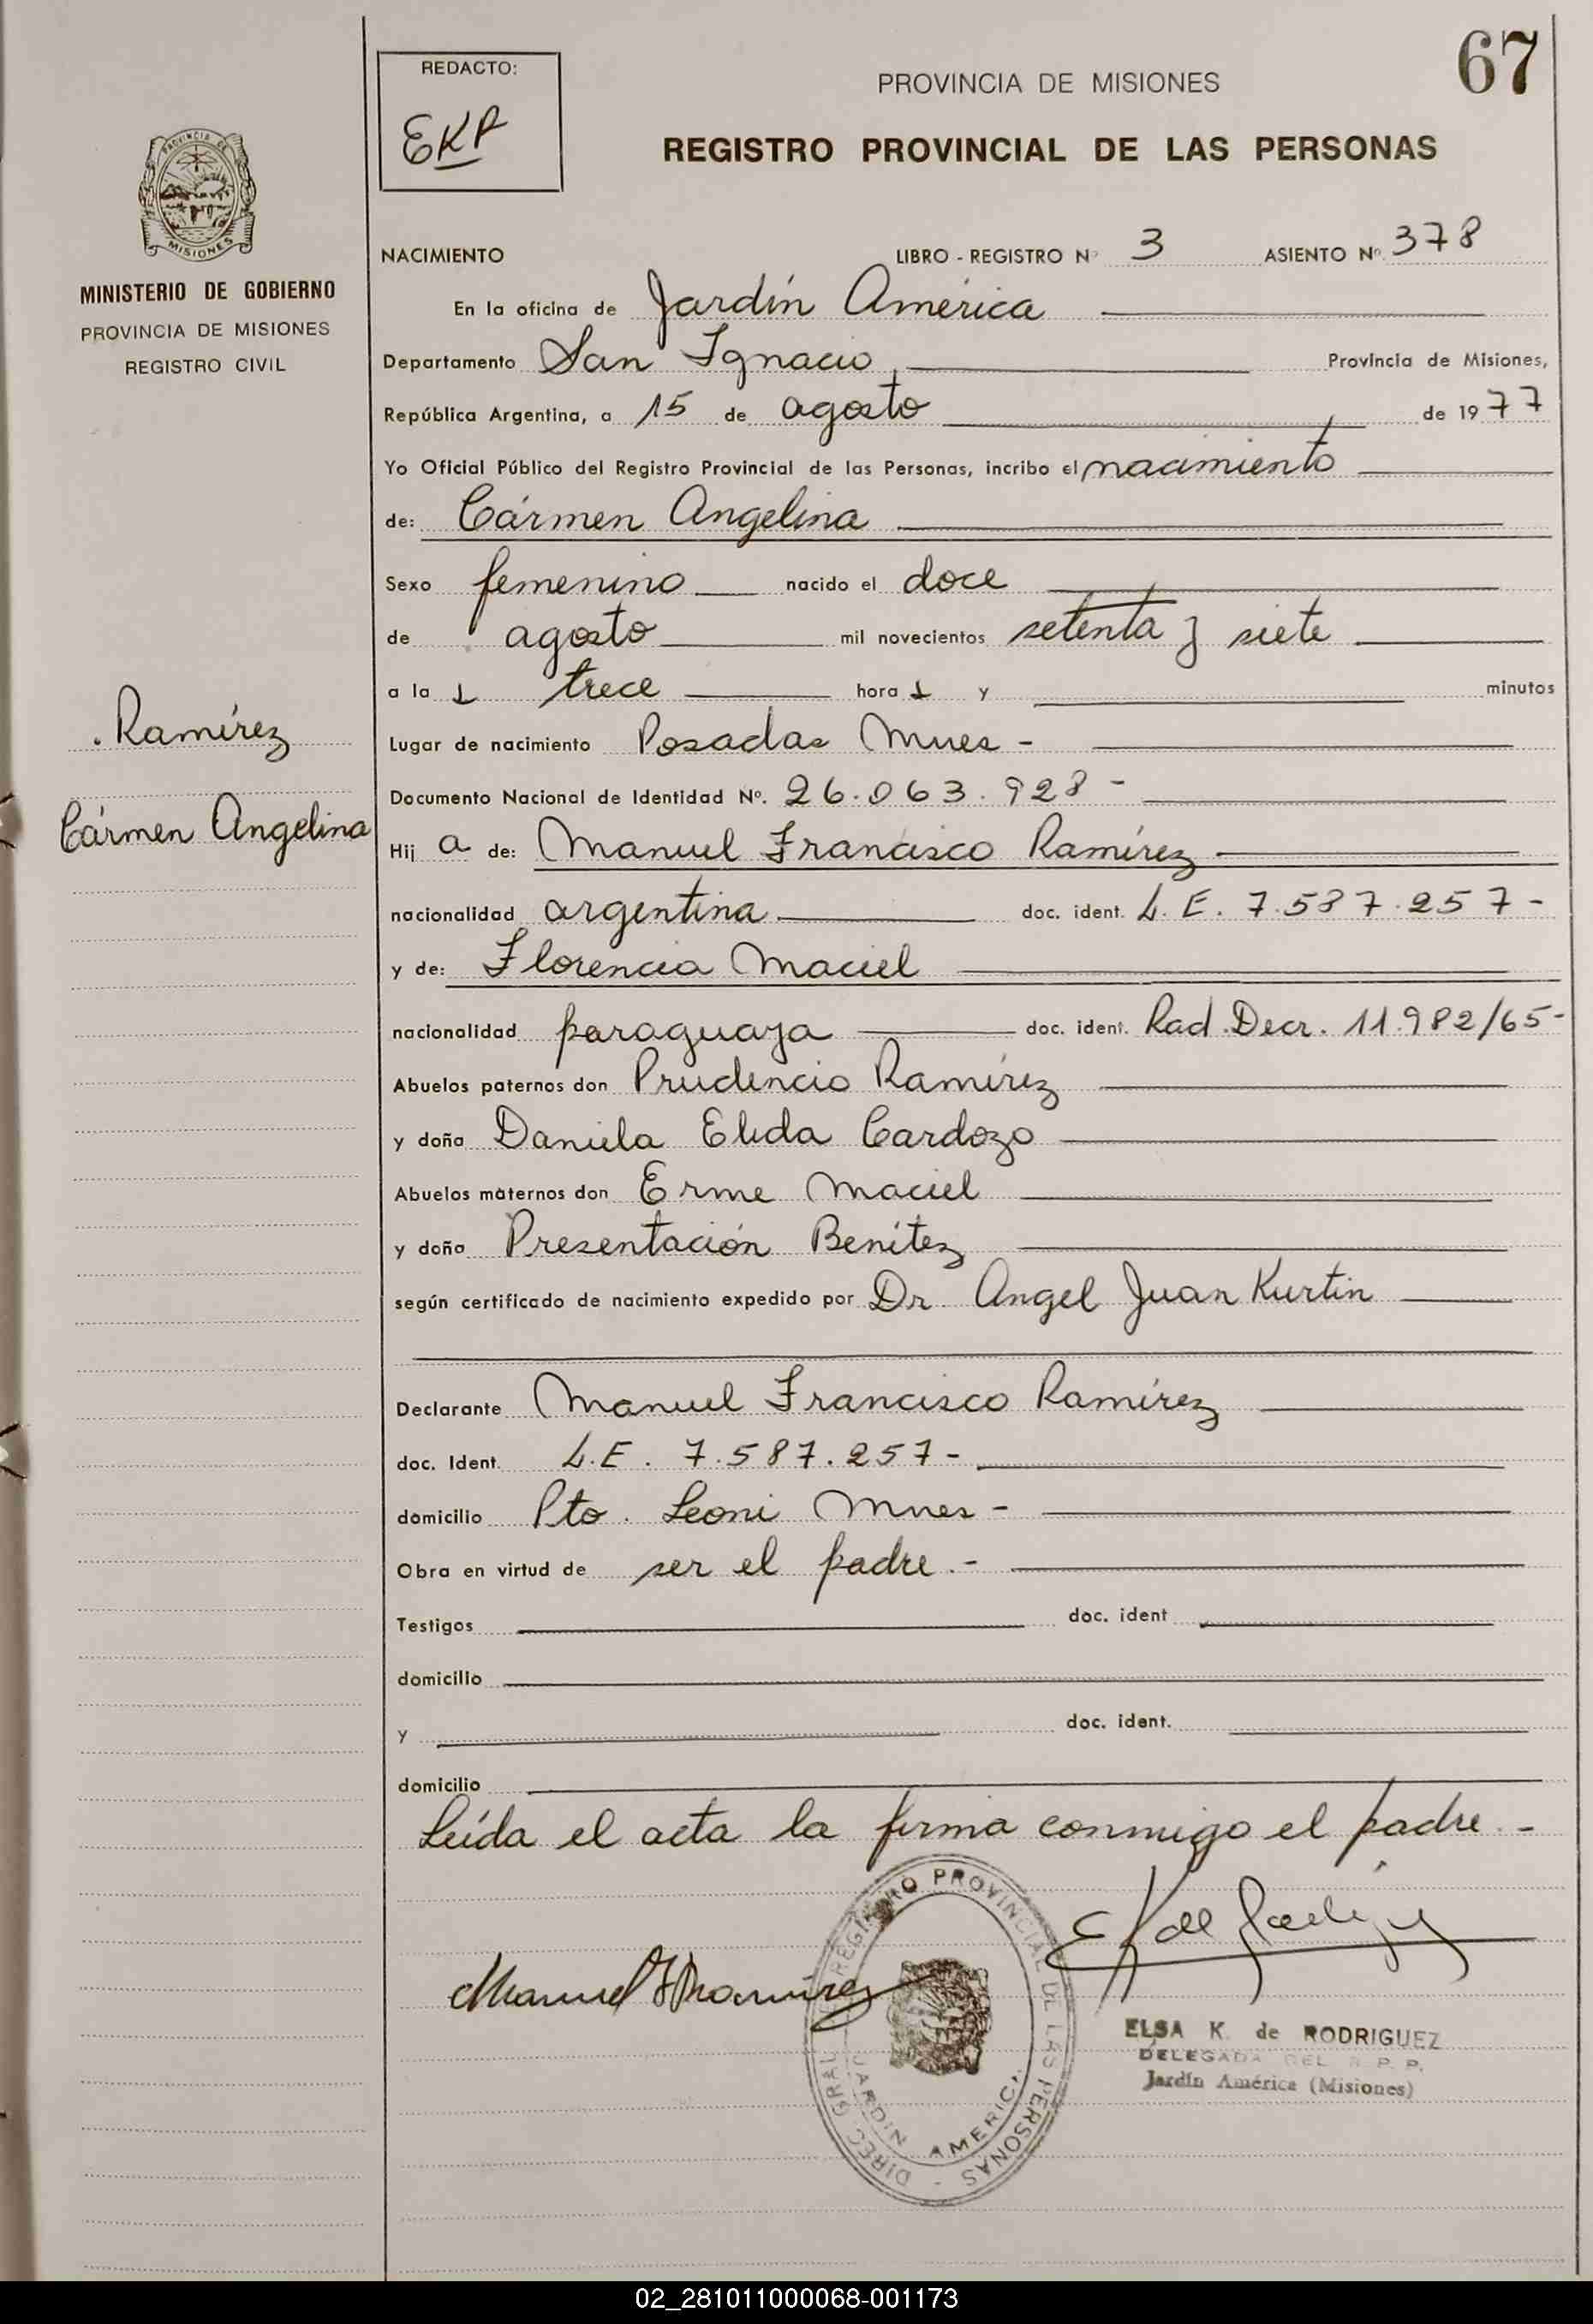 67
REDACTO:
EKR
PROVINCIA DE MISIONES
REGISTRO PROVINCIAL DE LAS PERSONAS
PROVINCIA DE
MISIONES
MINISTERIO DE GOBIERNO
PROVINCIA DE MISIONES
REGISTRO CIVIL
NACIMIENTO LIBRO - REGISTRO Nº 3 ASIENTO Nº 378
En la oficina de Jardín América
Departamento San Ignacio, Provincia de Misiones,
República Argentina, a 15 de agosto de 1977
Yo Oficial Público del Registro Provincial de las Personas, incribo el nacimiento
de: Cármen Angelina
Sexo femenino nacido el doce
de agosto mil novecientos setenta y siete
a la s trece hora s y minutos
Ramírez
Cármen Angelina
Lugar de nacimiento Posadas Mnes -
Documento Nacional de Identidad Nº. 26.063.928 -
Hij a de: Manuel Francisco Ramírez
nacionalidad argentina doc. ident. L. E. 7.587.257 -
y de: Florencia Maciel
nacionalidad paraguaya doc. ident. Rad. Decr. 11.982/65 -
Abuelos paternos don Prudencio Ramírez
y doña Daniela Elida Cardozo
Abuelos maternos don Erme Maciel
y doña Presentación Benítez
según certificado de nacimiento expedido por Dr. Angel Juan Kurtin
Declarante Manuel Francisco Ramírez
doc. Ident. L.E. 7.587.257 -
domicilio Pto. Leoni Mnes -
Obra en virtud de ser el padre. -
Testigos doc. ident
domicilio
y doc. ident.
domicilio
Leída el acta la firma conmigo el padre. -
Manuel F Ramírez
DIREC. GRAL. REGISTRO PROVINCIAL DE LAS PERSONAS -
JARDIN AMERICA
ELSA K. de RODRIGUEZ
DELEGADA DEL R. P. P.
Jardín América (Misiones)
02_281011000068-001173